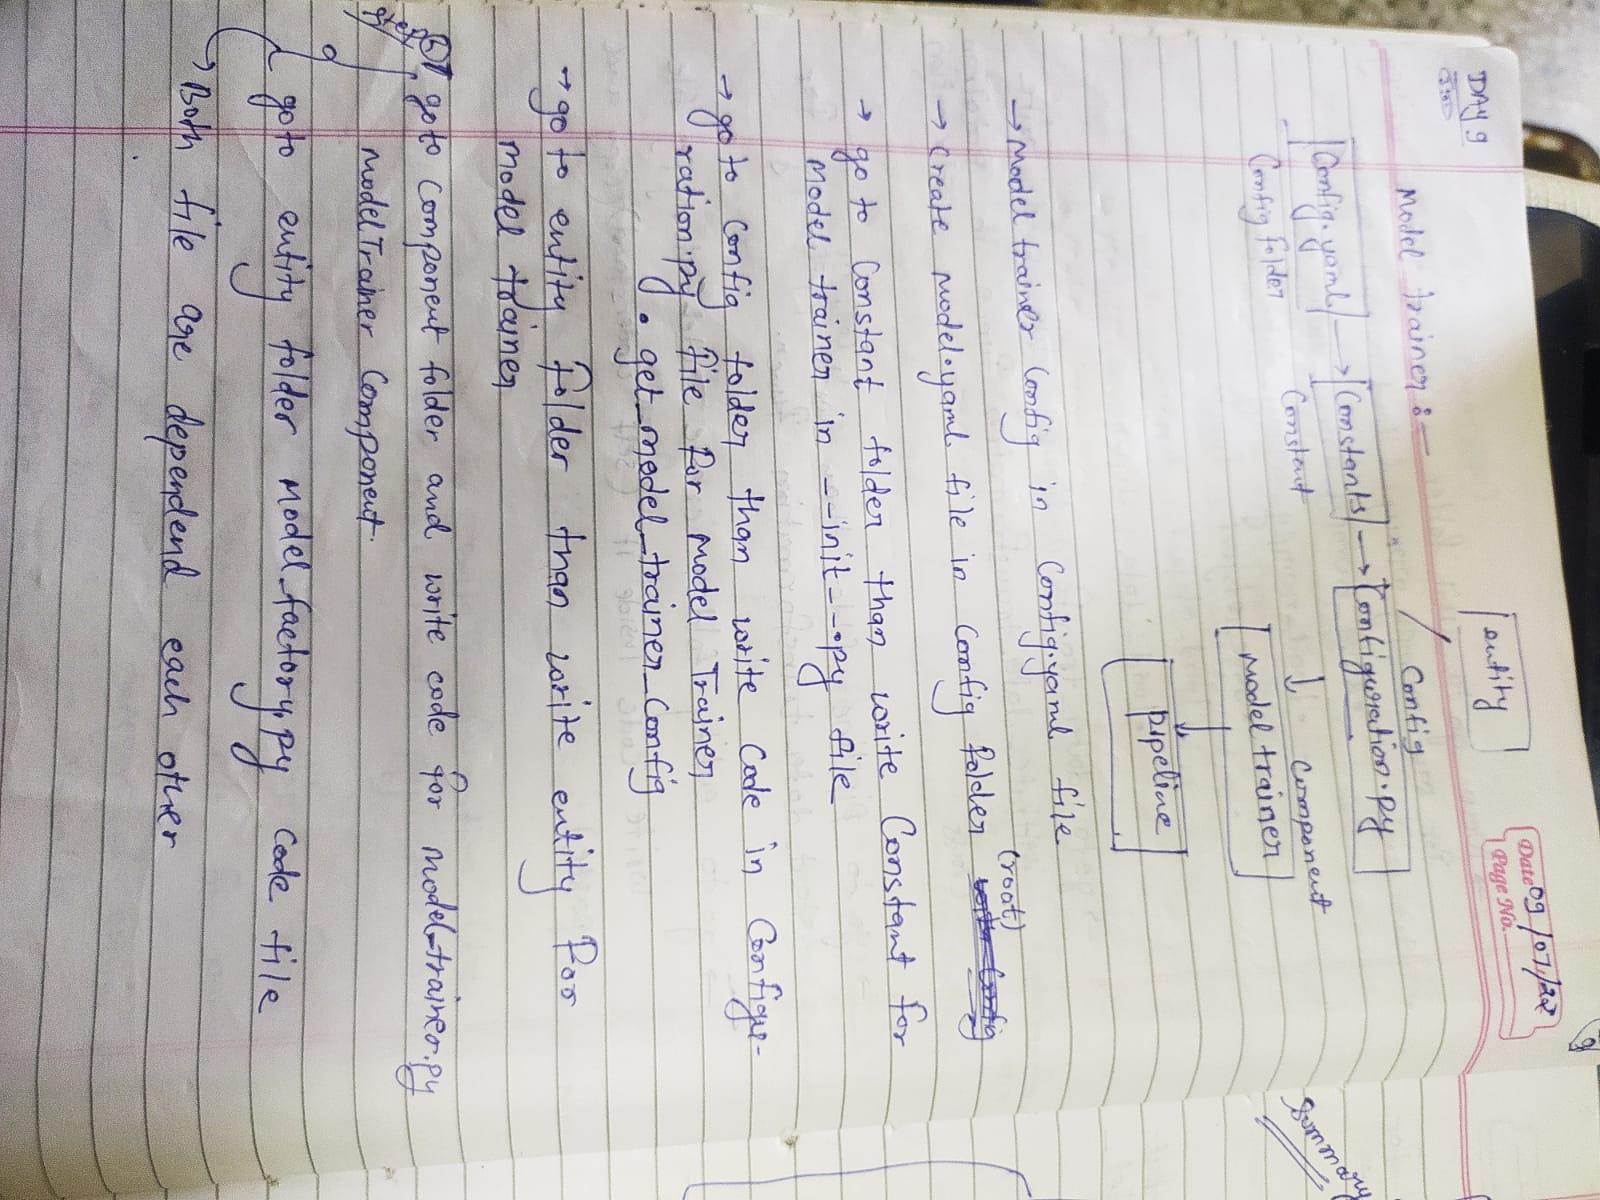 Date 09/07/22
Page No.
DAY 9
entity
Model trainer :-
Config
Config.yaml → Constants → Configuration.py
Config folder
Constant
Component
Model trainer
pipeline
Summary
→ Model trainer Config in Config.yaml file
(root)
→ Create model.yaml file in Config folder
→ go to Constant folder than write Constant for
Model trainer in --init--.py file
→ go to Config folder than write Code in Configu-
ration.py file for Model Trainer
• get_model_trainer_Config
→ go to entity folder than write entity for
model trainer
Step 6 goto component folder and write code for model_trainer.py
Model Trainer Component.
goto entity folder model_factory.py Code file
→ Both file are dependend each other